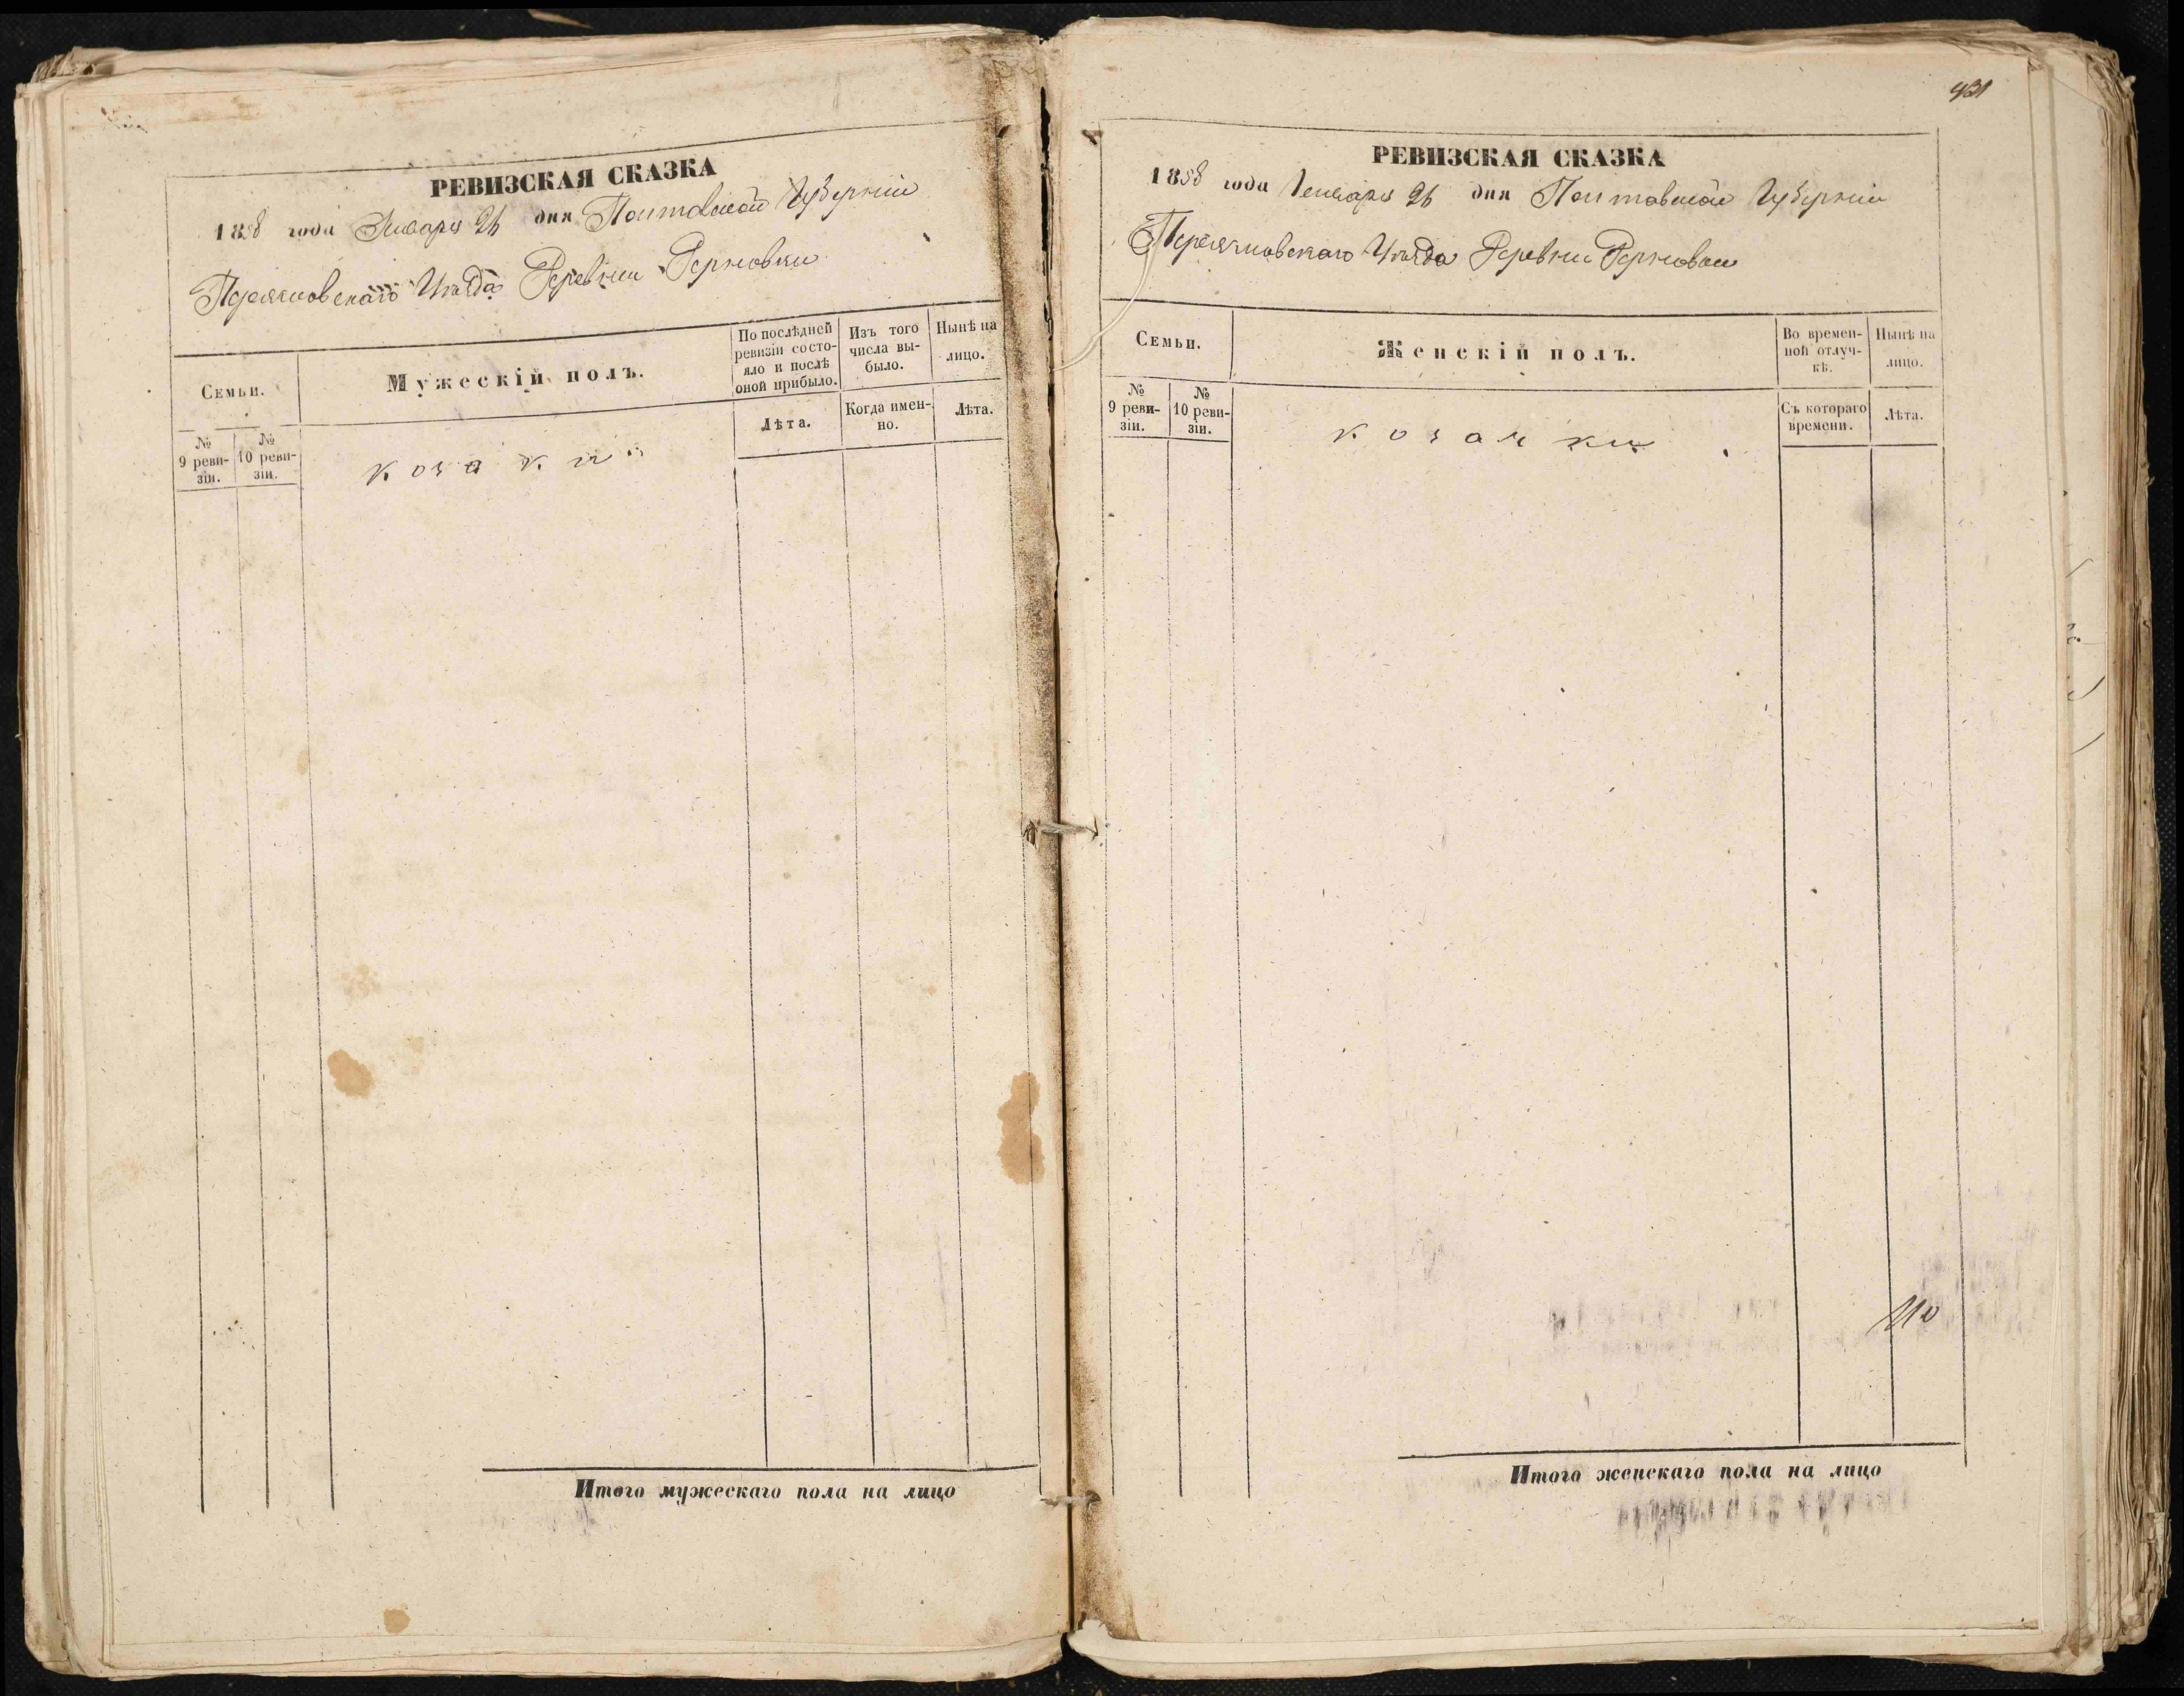 РЕВИЗСКАЯ СКАЗКА
1858 года Января 26 дня Полтавской Губернии
Переяславскаго Уѣзда Деревни
Семьи.
№ 9 ревизіи.
№ 10 ревизіи.
Мужескій полъ.
По послѣдней ревизіи состояло и послѣ оной прибыло.
Изъ того числа выбыло.
Нынѣ на лицо.
Лѣта.
Когда именно.
Лѣта.
козаки
Итого мужескаго пола на лицо
431
РЕВИЗСКАЯ СКАЗКА
1858 года Генваря 26 дня Полтавской Губернии
Переяславскаго Уѣзда Деревни
Семьи.
№ 9 ревизіи.
№ 10 ревизіи.
Женскій полъ.
Во временной отлучкѣ.
Нынѣ на лицо.
Съ котораго времени.
Лѣта.
козачки
Итого женскаго пола на лицо